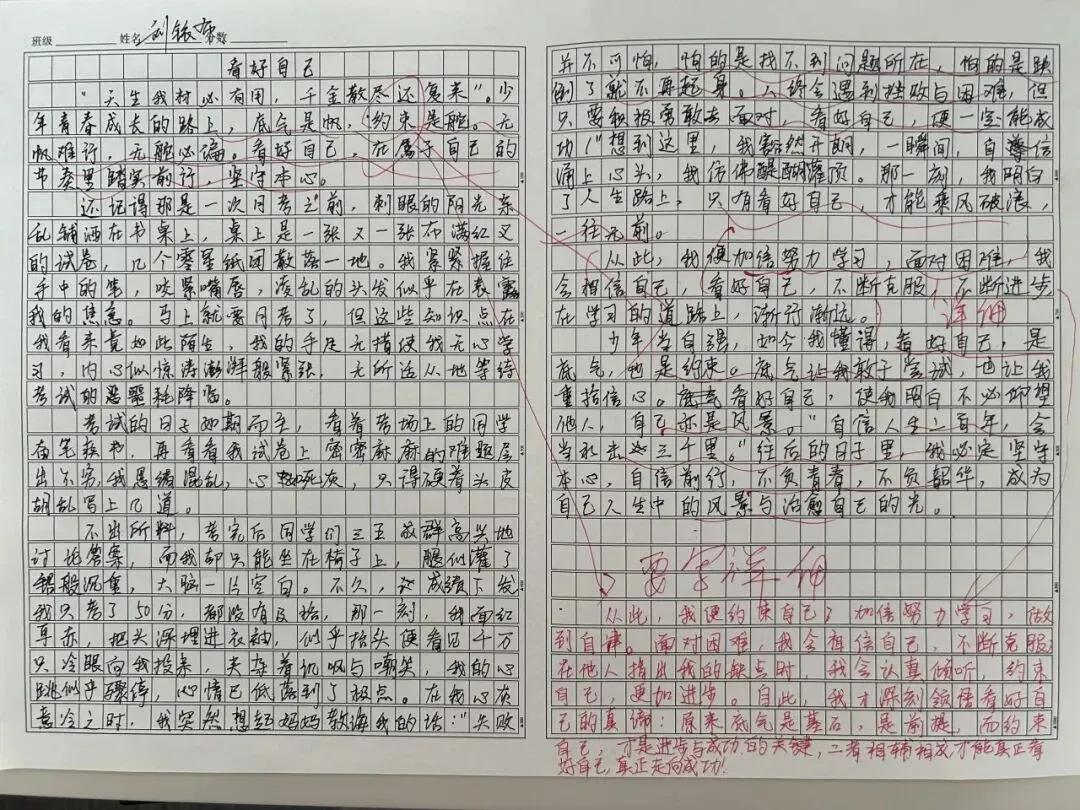 班级 姓名 刘银 分数
看好自己
“天生我材必有用，千金散尽还复来”。少
年青春成长的路上，底气是帆，约束是舵。无
帆难行，无舵必偏。看好自己，在属于自己的
节奏里踏实前行，坚守本心。
还记得那是一次月考之前，刺眼的阳光杂
乱铺洒在书桌上，桌上是一张又一张布满红叉
的试卷，几个零星纸团散落一地。我紧紧握住
手中的笔，咬紧嘴唇，凌乱的头发似乎在表露
我的焦急。马上就要月考了，但这些知识点在
我看来竟如此陌生，我的手足无措使我无心学
习，内心似惊涛澎湃般紧张，无所适从地等待
考试的噩耗降临。
考试的日子如期而至，看着考场上的同学
奋笔疾书，再看看我试卷上密密麻麻的难题层
出不穷，我思绪混乱，心如死灰，只得硬着头皮
胡乱写上几道。
不出所料，考完后同学们三五成群高兴地
讨论答案，而我却只能坐在椅子上，腿似灌了
铅般沉重，大脑一片空白。不久，成绩下发
我只考了50分，都没有及格，那一刻，我面红
耳赤，把头深埋进衣袖，似乎抬头便看见千万
只冷眼向我投来，夹杂着讥讽与嘲笑，我的心
跳似乎骤停，心情已低落到了极点。在我心灰
意冷之时，我突然想起妈妈教诲我的话：“失败
并不可怕，怕的是找不到问题所在，怕的是跌
倒了就不再起身。人终会遇到挫败与困难，但
只要积极勇敢去面对，看好自己，便一定能成
功！”想到这里，我豁然开朗，一瞬间，自信
涌上心头，我仿佛醍醐灌顶。那一刻，我明白
了人生路上，只有看好自己，才能乘风破浪，
一往无前。
从此，我便加倍努力学习，面对困难，我
会相信自己，看好自己，不断克服，不断进步
在学习的道路上，渐行渐远。 详细
少年当自强，如今我懂得，看好自己，是
底气，也是约束。底气让我敢于尝试，也让我
重拾信心。底气看好自己，使我明白不必仰望
他人，自己亦是风景。“自信人生二百年，会
当水击三千里。”往后的日子里，我必定坚守
本心，自信前行，不负青春，不负韶华，成为
自己人生中的风景与治愈自己的光。
要写详细
从此，我便约束自己，加倍努力学习，做
到自律。面对困难，我会相信自己，不断克服
在他人指出我的缺点时，我会认真倾听，约束
自己，更加进步。自此，我才深刻领悟看好自
己的真谛：原来底气是基石，是前提，而约束
自己，才是进步与成功的关键，二者相辅相成才能真正看
好自己，真正走向成功！